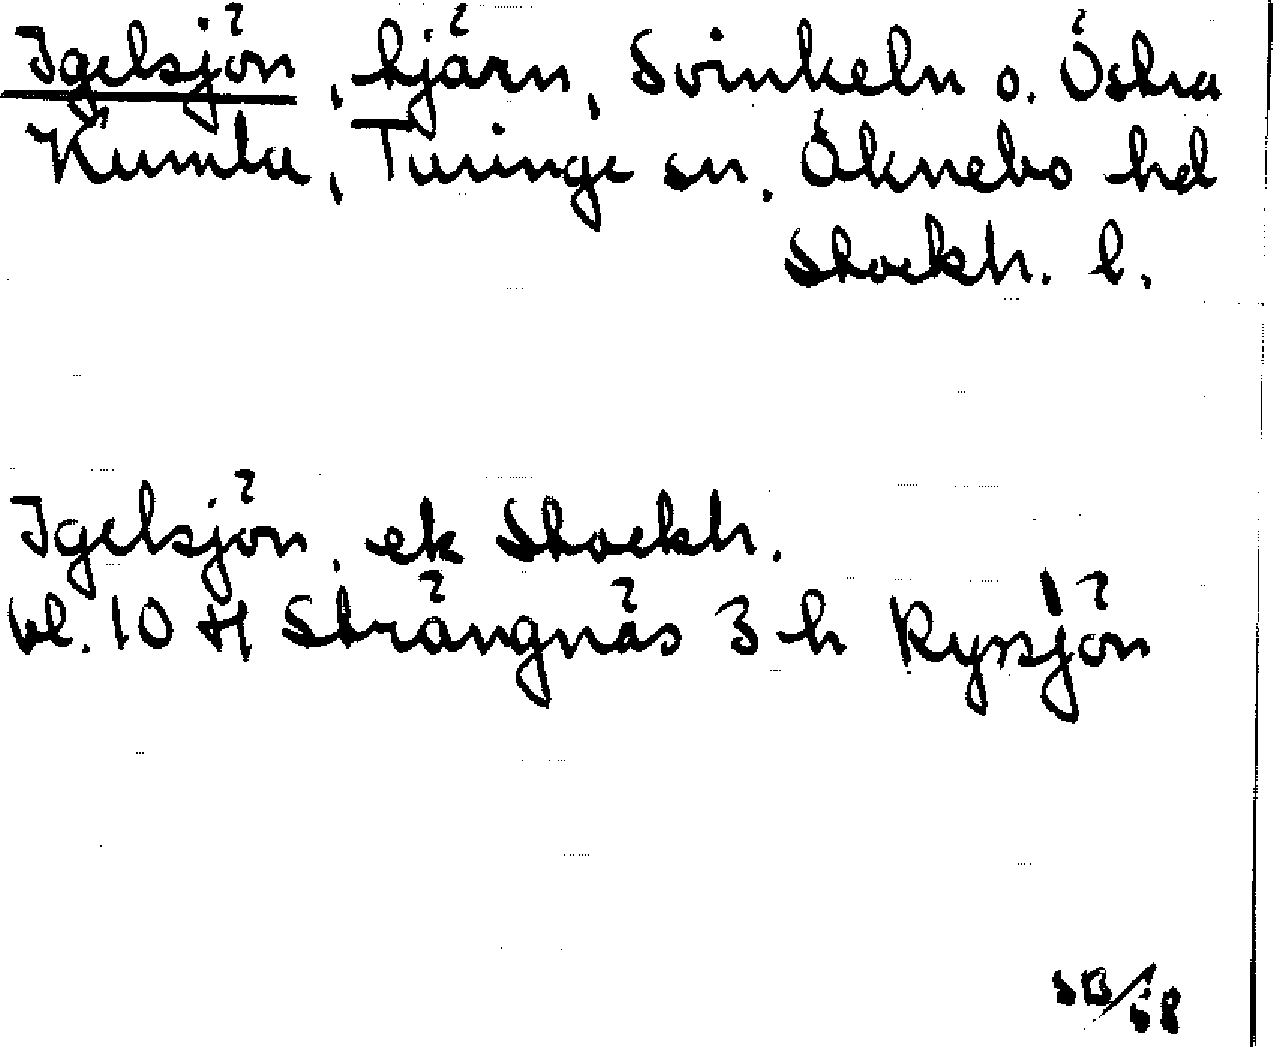 Igelsjön, tjärn, Svinkeln o. Östra
Kumla, Turinge sn. Öknebo hd
Stockh. l.
Igelsjön, ek Stockh.
bl. 10 H Strängnäs 3 h Ryssjön
SB/58